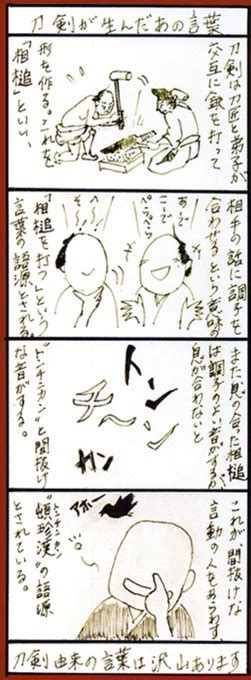 刀剣が生んだあの言葉
刀剣は刀匠と弟子が
交互に を打って
形を作る。これを
「相槌」といい、
相手の話に調子を
合わせるという意味の
「相槌を打つ」という
言葉の語源とされる。
ペラペラ
また息の合った相槌
は調子のよい音がするが
息が合わないと
トン
チ〜ン
カン
"トンチンカン"と間抜け
な音がする。
これが、間抜けな
言動の人をあらわす
アホー
"頓珍漢"の語源
トンチンカン
とされている。
刀剣由来の言葉は沢山あります